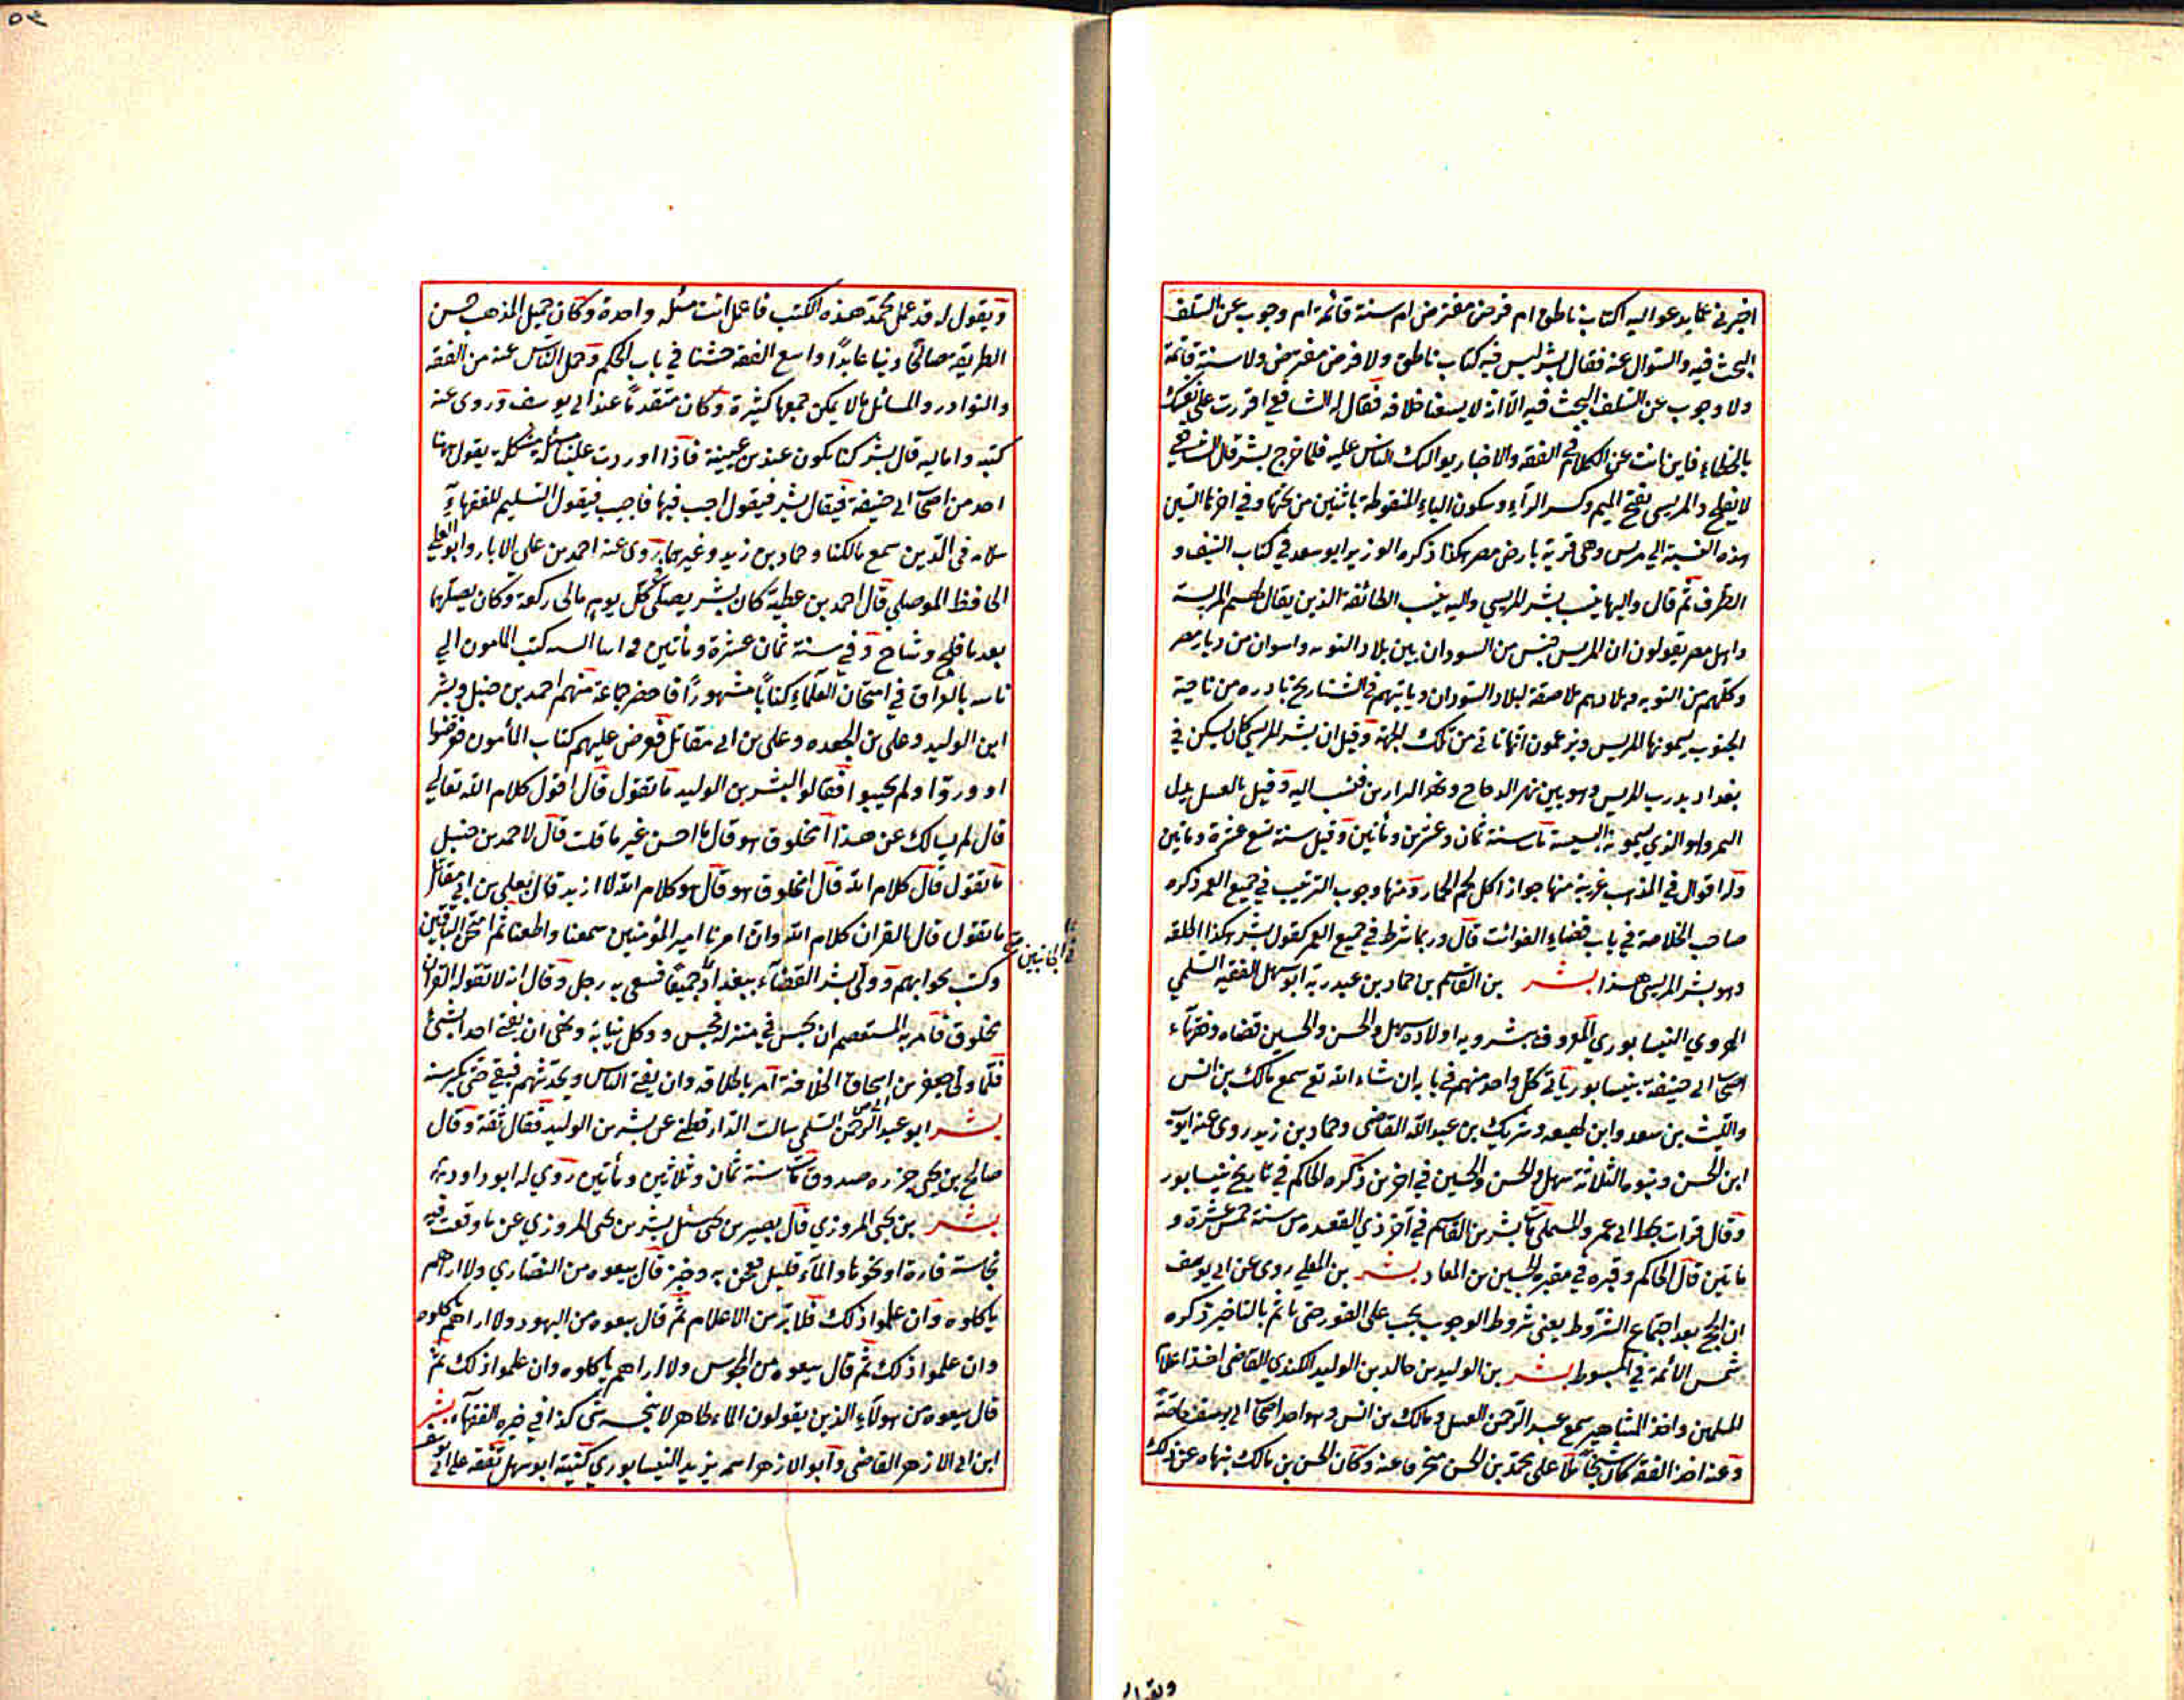 اخبرني عما يدعو اليه اكتاب ناطق ام فرض مفترض ام سنة قائمة ام وجوب عن السلف
البحث فيه والسؤال عنه فقال بشر ليس فيه كتاب ناطق ولا فرض مفترض ولا سنة قائمة
ولا وجوب عن السلف البحث فيه الا انه لا يسعنا خلافه فقال له الشافعي اقررت على نفسك
بالخطاء فاين انت عن الكلام في الفقه والاخبار يواليك الناس عليه فلما خرج بشر قال الشافعي
لا يفلح والمريسي بفتح الميم وكسر الراء وسكون الياء المنقوطة باثنتين من تحتها وفي اخرها السين
هذه النسبة الى مريس وهي قرية بارض مصر هكذا ذكره الوزير ابو سعد في كتاب النتف و
الطرف ثم قال واليها ينسب بشر المريسي واليه ينسب الطائفة الذين يقال لهم المريسة
واهل مصر يقولون ان المريس جنس من السودان بين بلاد النوبه واسوان من ديار مصر
وكلهم من النوبه وبلادهم ملاصقة لبلاد السودان وياتيهم في الشتا ريح باردة من ناحية
الجنوب يسمونها المريس ويزعمون انها تاتي من تلك الجهة وقيل ان بشر المريسي كان يسكن في
بغداد بدرب المريس وهو بين نهر الدجاج ونهر البزازين فنسب اليه وقيل بالعسل بدل
التمر وهو الذي يسمونه البسيسه مات سنة ثمان وعشرين ومأتين وقيل سنة تسع عشرة ومأتين
وله اقوال في المذهب غريبة منها جواز اكل لحم الحمار ومنها وجوب الترتيب في جميع العمر ذكره
صاحب الخلاصة في باب قضاء الفوائت قال وربما شرط في جميع العمر كقول بشر هكذا اطلقه
وهو بشر المريسي هذا بشر بن القاسم بن حماد بن عبد ربه ابو سهل الفقيه السلمي
الهروي النيسابوري المعروف بشرويه اولاده سهل والحسن والحسين قضاه وفقهاء
اصحاب ابي حنيفة بنيسابور ياتي كل واحد منهم في بابه ان شاء الله تع سمع مالك بن انس
والليث بن سعد وابن لهيعه وشريك بن عبد الله القاضي وحماد بن زيد روى عنه ايوب
ابن الحسن وبنوه الثلاثة سهل والحسن والحسين في اخرين ذكره الحاكم في تاريخ نيسابور
وقال قرات بخط ابي عمر والمستملي مات بشر بن القاسم في آخر ذي القعده من سنة خمس عشرة و
مأتين قال الحاكم وقبره في مقبرة الحسين بن المعاد بشر بن المعلى روى عن ابي يوسف
ان الحج بعد اجتماع الشروط يعني شروط الوجوب يجب على الفور حتى ياثم بالتاخير ذكره
شمس الائمة في المبسوط بشر بن الوليد بن خالد بن الوليد الكندي القاضي احد اعلام
المسلمين واحد المشاهير سمع عبد الرحمن الغسيل ومالك بن انس وهو احد اصحاب ابي يوسف خاصة
وعنه اخذ الفقه كان متحاملا على محمد بن الحسن منحرفا عنه وكان الحسن بن مالك ينهاه عن ذلك
ويقول له قد عمل محمد هذه الكتب فاعمل انت مسئله واحدة وكان جميل المذهب حسن
الطريقه صالحا دينا عابدا واسع الفقه خشنا في باب الحكم وحمل الناس عنه من الفقه
والنوادر والمسائل ما لا يمكن جمعها كثيرة وكان متقدما عند ابي يوسف وروى عنه
كتبه واماليه قال بشر كنا نكون عند بن عيينة فاذا اوردت علينا مسئلة مشكلة يقول ههنا
احد من اصحاب ابي حنيفة فيقال بشر فيقول اجب فيها فاجيب فيقول التسليم للفقهاء
سلامه في الدين سمع مالكا وحماد بن زيد وغيرهما روى عنه احمد بن علي الابار وابو يعلى
الحافظ الموصلي قال احمد بن عطية كان بشر يصلى كل يوم مائتى ركعة وكان يصليها
بعد ما فلج وشاخ وفي سنة ثمان عشرة ومأتين كتب المامون الى
نائبه بالعراق في امتحان العلماء كتابا مشهورا فاحضر جماعة منهم احمد بن حنبل وبشر
ابن الوليد وعلي بن الجعده وعلي بن ابي مقاتل فعرض عليهم كتاب المأمون فعرضوا
او وروّا ولم يجيبوا فقال لبشر بن الوليد ما تقول قال اقول كلام الله تعالى
قال لم يسالك عن هذا أمخلوق هو قال ما احسن غير ما قلت قال لاحمد بن حنبل
ما تقول قال كلام الله قال امخلوق هو قال هو كلام الله لا ازيد قال لعلي بن ابي مقاتل
ما تقول قال القران كلام الله وان امرنا امير المؤمنين سمعنا واطعنا ثم امتحن الباقين
وكتب بجوابهم وولّي بشر القضاء ببغداد جميعا فسعى به رجل وقال انه لا تقول القران
في الجانبين صح
مخلوق فامر به المعتصم ان يحبس في منزله فحبس ووكل ببابه ونهى ان يفتي احدا بشئ
فلما ولي جعفر بن اسحاق الخلافة امر باطلاقه وان يفتي الناس ويحدثهم فبقي حتى كبر سنه
بشر ابو عبد الرحمن السلمي سالت الدارقطني عن بشر بن الوليد فقال ثقة وقال
صالح بن يحيى جزره صدوق مات سنة ثمان وثلاثين ومأتين روى له ابو داود
بشر بن يحيى المروزي قال نصير بن يحيى سئل بشر بن يحيى المروزي عن ما وقعت فيه
نجاسة فارة او نحوها والماء قليل فعجن به وخبز قال بيعوه من النصارى ولا اراهم
ياكلوه وان علموا ذلك فلا بد من الاعلام ثم قال بيعوه من اليهود ولا اراهم ياكلوه
وان علموا ذلك ثم قال بيعوه من المجوس ولا اراهم ياكلوه وان علموا ذلك ثم
قال بيعوه من هولاء الذين يقولون الماء طاهر لا ينجسه شئ كذا في خيره الفقهاء بشر
ابن ابي الازهر القاضي وابو الازهر اسمه يزيد النيسابوري كنيته ابو سهل تفقه على ابي يوسف